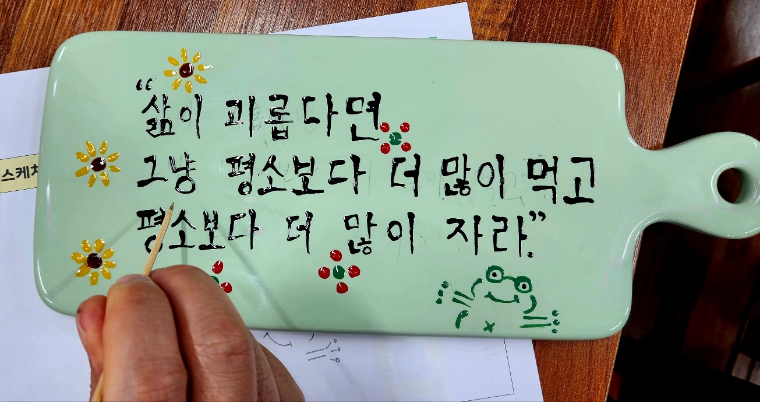 “삶이 괴롭다면
그냥 평소보다 더 많이 먹고
평소보다 더 많이 자라.”
스케치